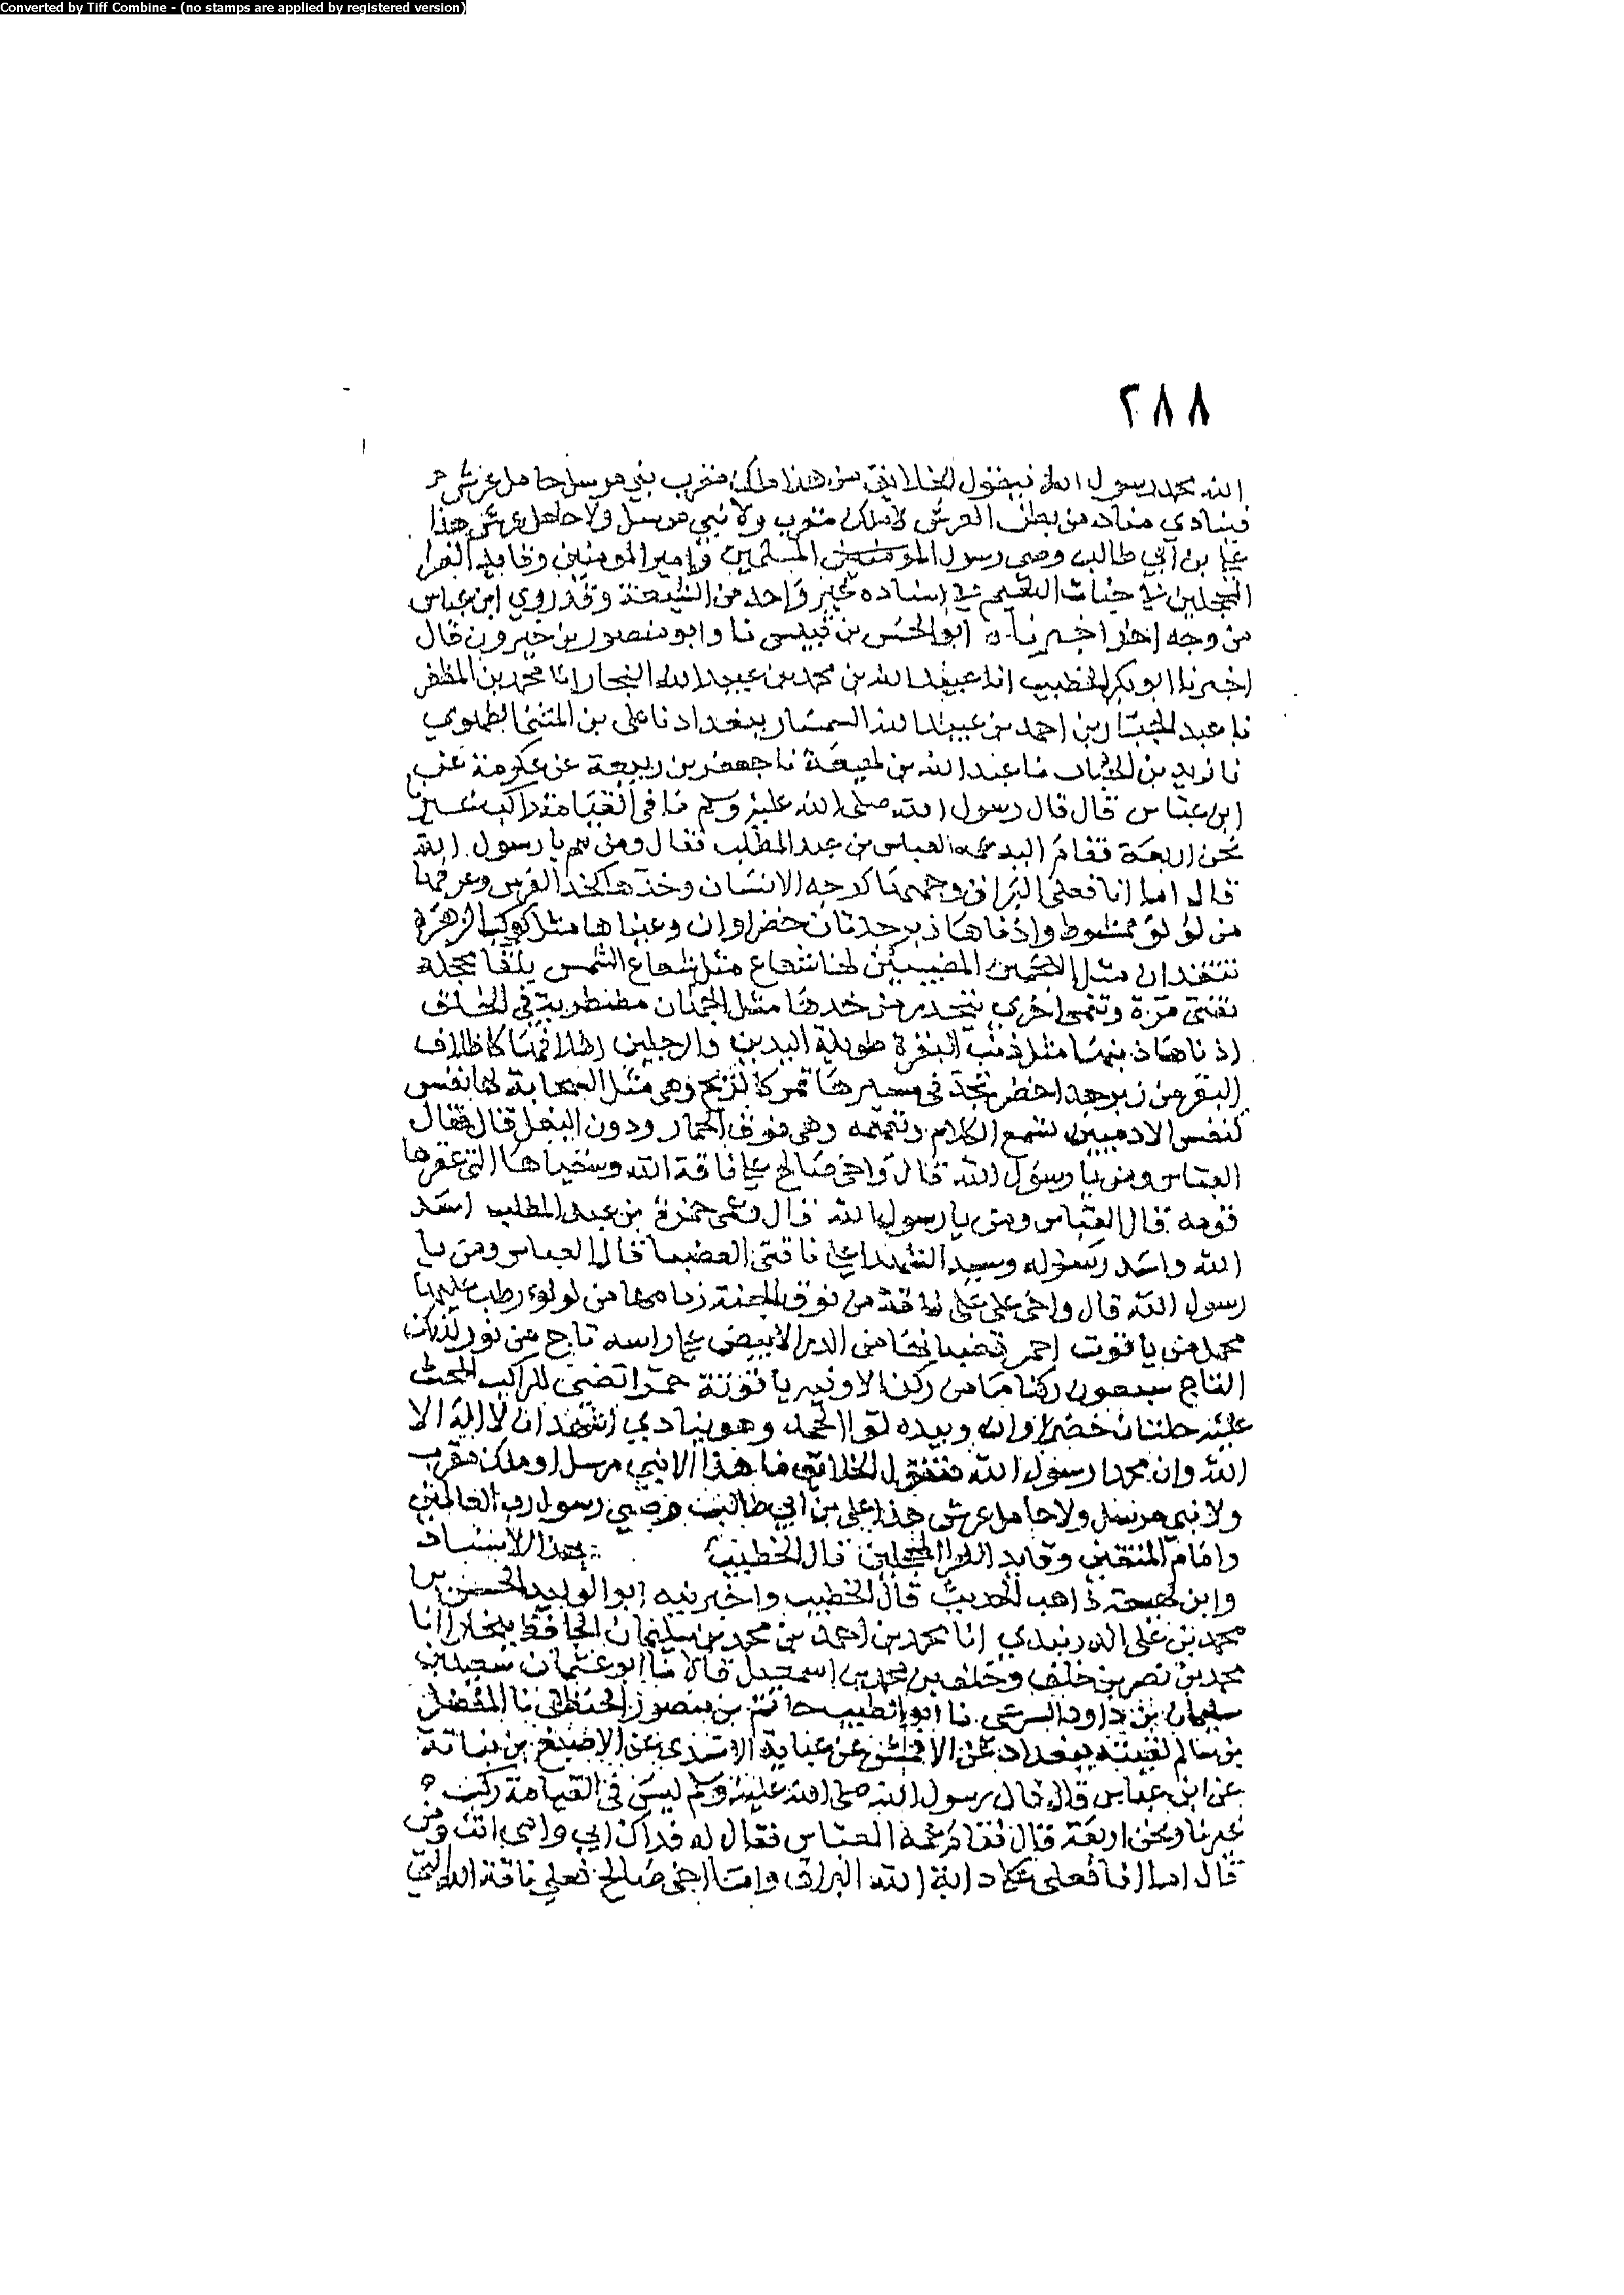 Converted by Tiff Combine - (no stamps are applied by registered version)
٢٨٨
الله محمد رسول الله فيقول الخلايق من هذا ملك مقرب نبي مرسل حامل عرش
فينادي مناد من بطن العرش لا ملك مقرب ولا نبي مرسل ولا حامل عرش هذا
علي بن ابي طالب وصي رسول المسلمين وامير المومنين وقايد الغر
المحجلين في جنات النعيم في اسناده غير واحد من الشيعة وقد روي ابن عباس
من وجه اخر اخبرنا ابو الحسن بن قبيس نا وابو منصور بن خيرون قال
اخبرنا ابو بكر الخطيب انا عبيد الله بن محمد بن عبيد الله النجار انا محمد بن المظفر
نا عبد الجبار بن احمد بن عبيد الله السمسار ببغداد نا علي بن المثنى الطهوي
نا زيد بن الحباب نا عبد الله بن لهيعة نا جعفر بن ربيعة عن عكرمة عن
ابن عباس قال قال رسول الله صلى الله عليه وسلم ما في القيامة راكب غير
نحن اربعة فقام اليه عمه العباس بن عبد المطلب فقال ومن هم يا رسول الله
قال اما انا فعلى البراق وجهها كوجه الانسان وخدها كخد الفرس وعرفها
من لؤلؤ ممشوط واذناها زبرجدتان خضراوان وعيناها مثل كوكب الزهرة
تتقدان مثل النجمين المضيئين لها شعاع مثل شعاع الشمس بلقا محجلة
تضى مرة وتنمي اخرى يتحدر من خدها مثل الجمان مضطربة في الخلق
اذناها ذنبها مثل ذنب البقرة طويلة اليدين والرجلين اظلافها كاظلاف
البقر من زبرجد اخضر تجد في مسيرها تمر كالريح وهي مثل السحابة لها نفس
كنفس الادميين تسمع الكلام وتفهمه وهي فوق الحمار ودون البغل قال فقال
العباس ومن يا رسول الله قال واخي صالح على ناقة الله وسقياها التي عقرها
قومه قال العباس ومن يا رسول الله قال وعمي حمزة بن عبد المطلب اسد
الله واسد رسوله وسيد الشهدا على ناقتي العضبا قال العباس ومن يا
رسول الله قال واخي علي على ناقة من نوق الجنة زمامها من لولوء رطب عليها
محمل من ياقوت احمر قضبانها من الدر الابيض على راسه تاج من نور لذلك
التاج سبعون ركنا ما من ركن الا وفيه ياقوتة حمرا تضي للراكب المحث
عليه حلتان خضراوان وبيده لوا الحمد وهو ينادي اشهد ان لا اله الا
الله وان محمدا رسول الله فتقول الخلائق ما هذا الا نبي مرسل او ملك مقرب
ولا نبي مرسل ولا حامل عرش هذا علي بن ابي طالب وصي رسول رب العالمين
وامام المتقين وقايد الغر المحجلين قال الخطيب بهذا الاسناد
وابن لهيعة ذاهب الحديث قال الخطيب واخبرنيه ابو الوليد الحسن بن
محمد بن علي الدربندي انا محمد بن احمد بن محمد بن سليمان الحافظ ببخارا انا
محمد بن نصر بن خلف وخلف بن محمد بن اسمعيل قالا نا ابو عثمان سعيد بن
سليمان بن داود الشرعي نا ابو الطيب حاتم بن منصور الحنظلي نا المفضل
بن سالم لقيته ببغداد عن الاعمش عن عباية الاسدي عن الاصبغ بن نباتة
عن ابن عباس قال قال رسول الله صلى الله عليه وسلم ليس في القيامة ركب
غيرنا ونحن اربعة قال فقام عمه العباس فقال له فداك ابي وامي انت ومن
قال اما انا فعلى دابة الله البراق واما اخي صالح فعلى ناقة الله التي